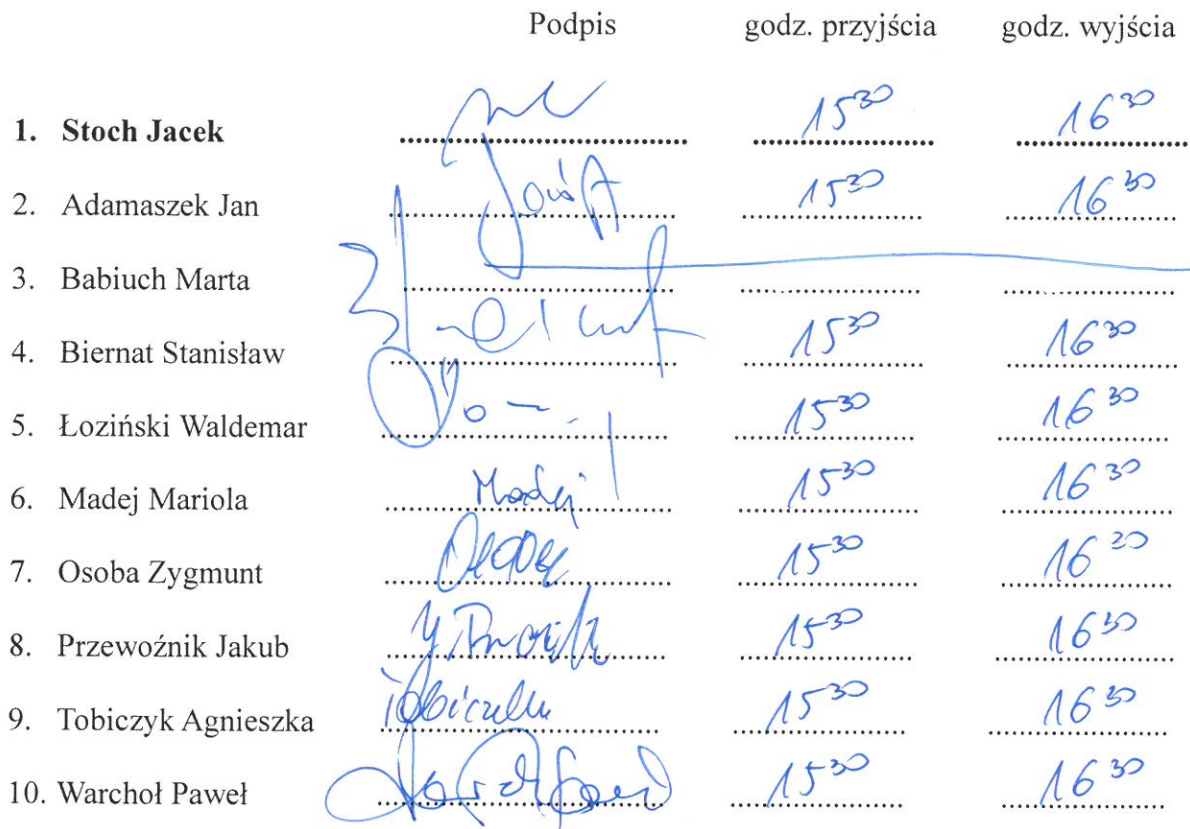 Podpis godz. przyjścia godz. wyjścia
1. Stoch Jacek 15³⁰ 16³⁰
2. Adamaszek Jan 15³⁰ 16³⁰
3. Babiuch Marta
4. Biernat Stanisław 15³⁰ 16³⁰
5. Łoziński Waldemar 15³⁰ 16³⁰
6. Madej Mariola Madej 15³⁰ 16³⁰
7. Osoba Zygmunt 15³⁰ 16³⁰
8. Przewoźnik Jakub 15³⁰ 16³⁰
9. Tobiczyk Agnieszka 15³⁰ 16³⁰
10. Warchoł Paweł 15³⁰ 16³⁰